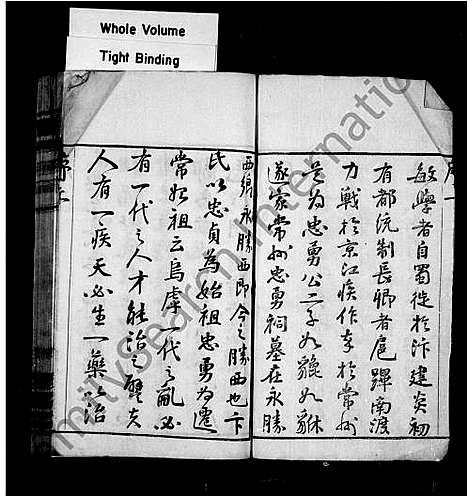 Whole Volume
Tight Binding
敏學者自蜀徙於汴建炎初
有都統制長卿者扈蹕南渡
力戰於京江疾作卒於常州
是為忠勇公二子如龍如
遂家常州忠勇祠墓在永勝
西鄉永勝西即今之勝西也卞
氏以忠貞為始祖忠勇為遷
常始祖云烏虖一代之亂必
有一代之人才能治之譬夫
人有一疾天必生一藥以治